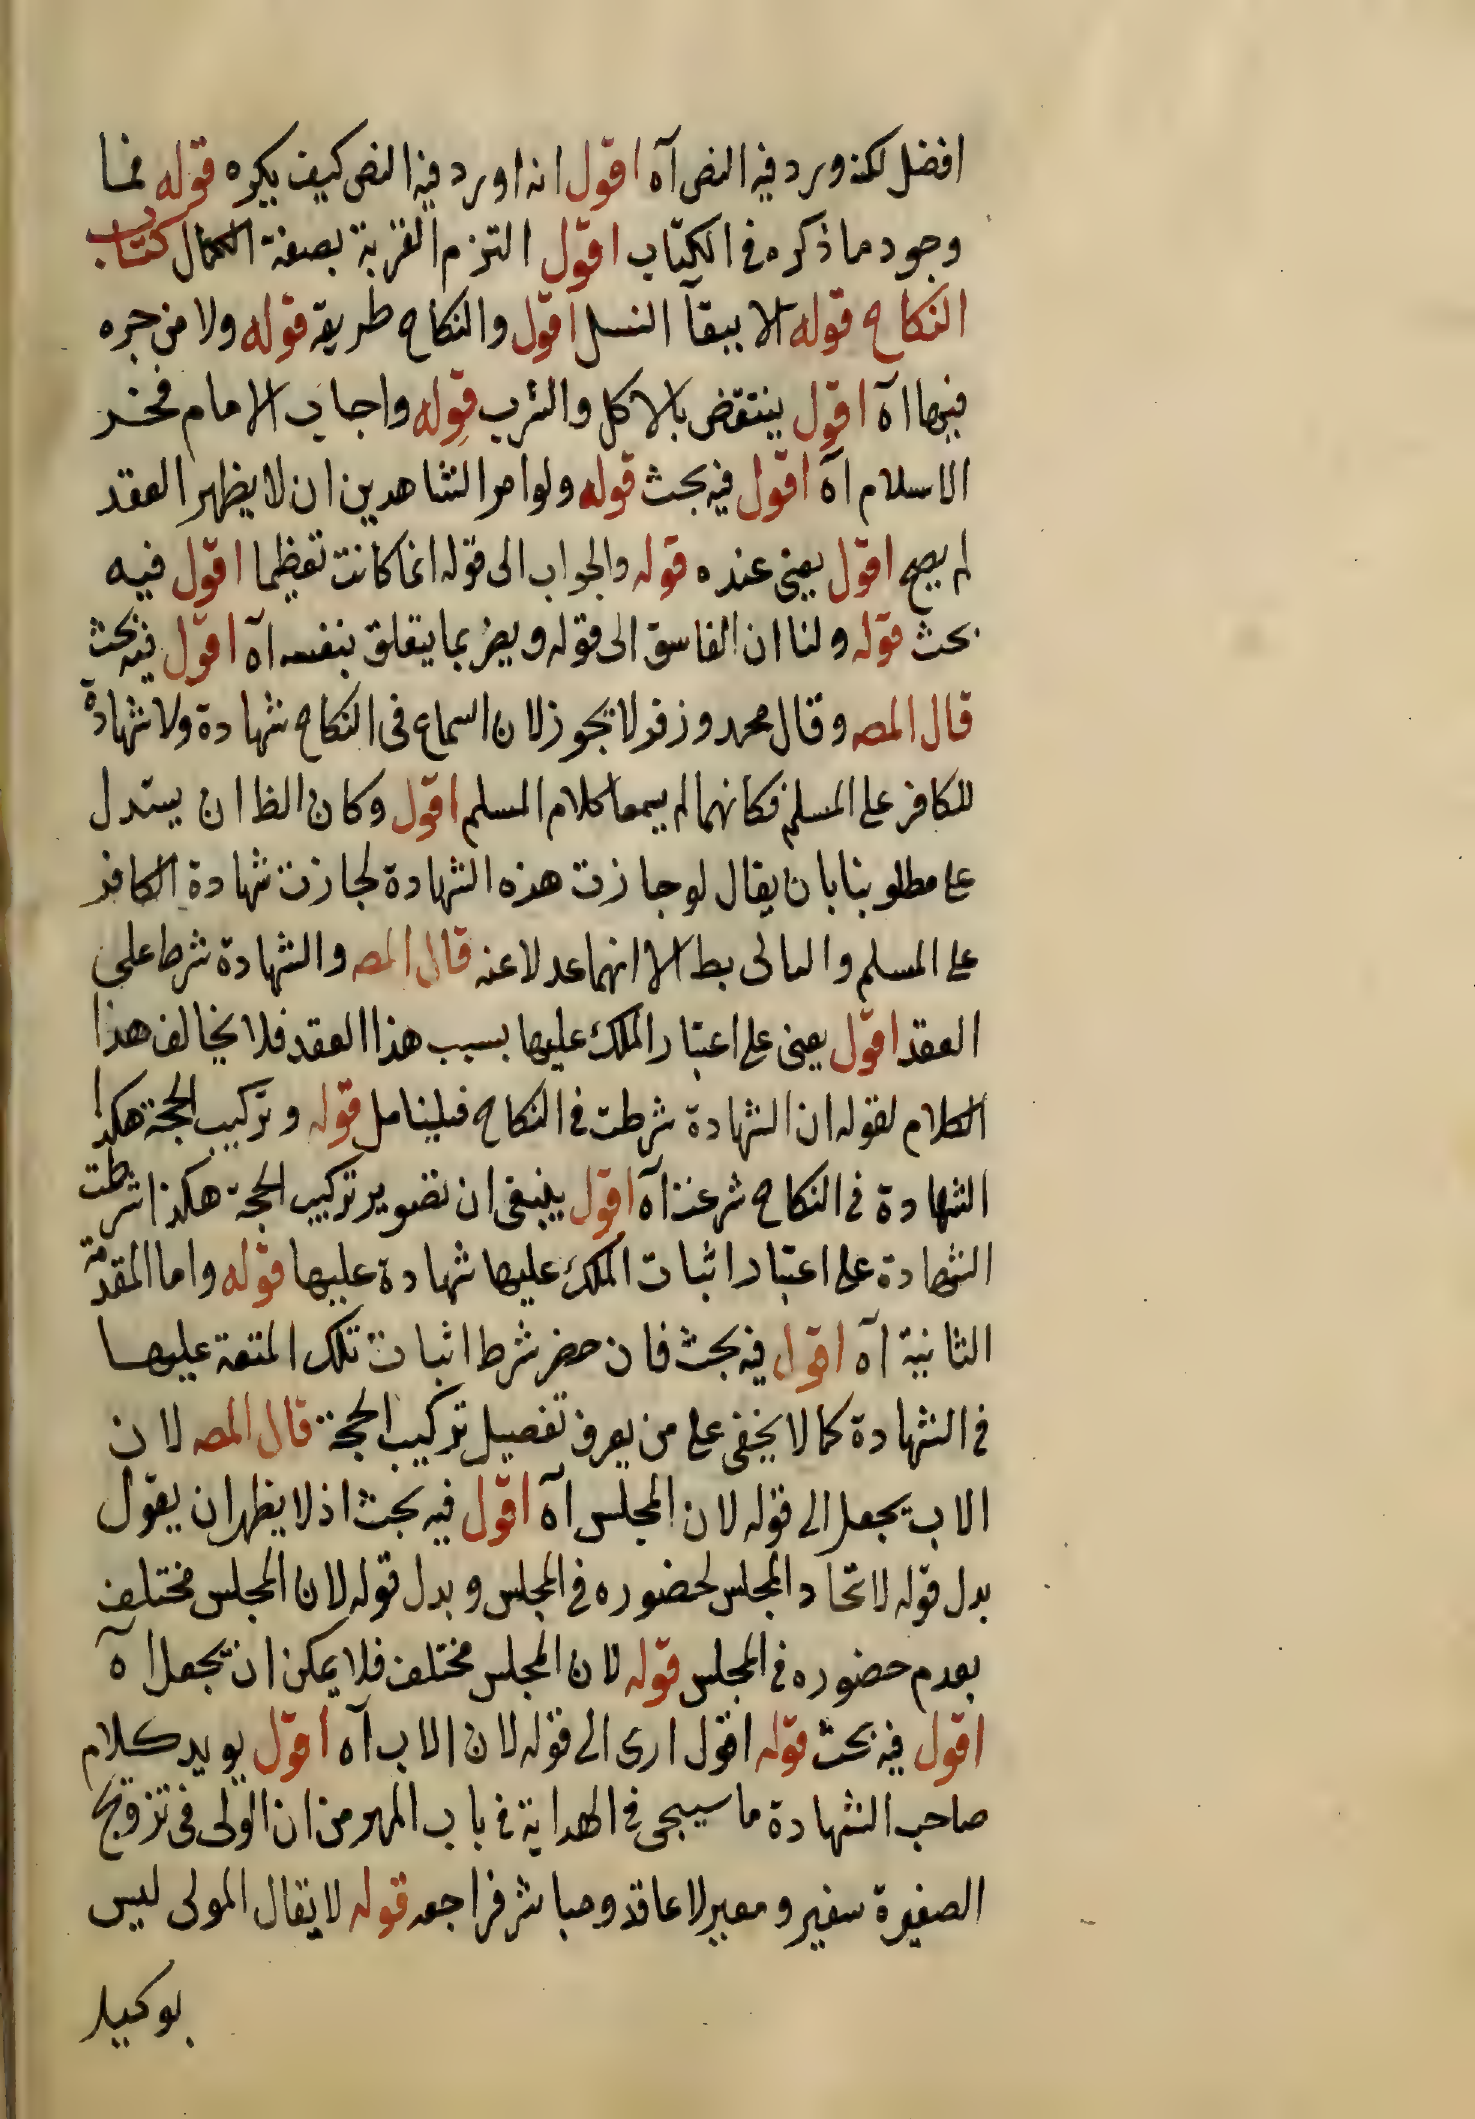 افضل لكنه ورد فيه النص آه اقول انه اورد فيه النص كيف يكره قوله فما
وجود ما ذكره فى الكتاب اقول التزم القربة بصفة الكمال كتاب
النكاح قوله الا ببقآ النسل اقول والنكاح طريقه قوله ولا مزجره
فيها آه اقول ينتقض بالاكل والشرب قوله واجاب الامام فخر
الاسلام آه اقول فيه بحث قوله ولو امر الشاهدين ان لا يظهر العقد
لم يصح اقول يعنى عنده قوله والجواب الى قوله انما كانت تعظيما اقول فيه
بحث قوله ولنا ان الفاسق الى قوله ويعز بما يتعلق بنفسه آه اقول فيه بحث
قال المصـ وقال محمد وزفر لا يجوز لان السماع فى النكاح شهادة ولا شهادة
للكافر على المسلم فكانهما لم يسمعا كلام المسلم اقول وكان الظ ان يستدل
على مطلوبنا بان يقال لو جازت هذه الشهادة لجازت شهادة الكافر
على المسلم والتالى بط الا انهما عدلا عنه قال المصـ والشهادة شرط على
العقد اقول يعنى على اعتبار الملك عليها بسبب هذا العقد فلا يخالف هذا
الكلام لقوله ان الشهادة شرطت فى النكاح فليتامل قوله وتركيب الحجة هكذا
الشهادة فى النكاح شرعت آه اقول ينبغى ان تصوير تركيب الحجة هكذا شرطت
الشهادة على اعتبار اثبات الملك عليها شهادة عليها قوله واما المقدمة
الثانية آه اقول فيه بحث فان حضر شرط اثبات تلك المتعة عليها
فى الشهادة كما لا يخفى على من يعرف تفصيل تركيب الحجة قال المصـ لان
الاب يجعل الى قوله لان المجلس آه اقول فيه بحث اذ لا يظهر ان يقول
بدل قوله لاتحاد المجلس لحضوره فى المجلس وبدل قوله لان المجلس مختلف
بعدم حضوره فى المجلس قوله لان المجلس مختلف فلا يمكن ان يجعل آه
اقول فيه بحث قوله اقول ارى الى قوله لان الاب آه اقول يويد كلام
صاحب الشهادة ما سيجى فى الهداية فى باب المهر من ان الولى فى تزويج
الصغيرة سفير ومعبر لا عاقد ومباشر فراجعه قوله لا يقال المولى ليس
بوكيل